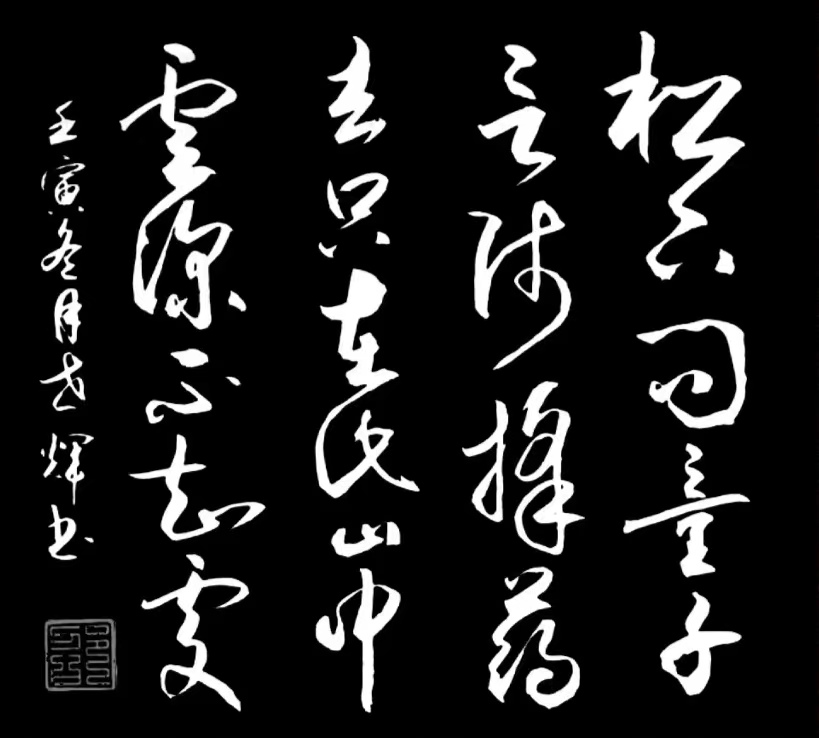 松下问童子
言师採药
去只在此山中
云深不知处
壬寅冬月志辉书